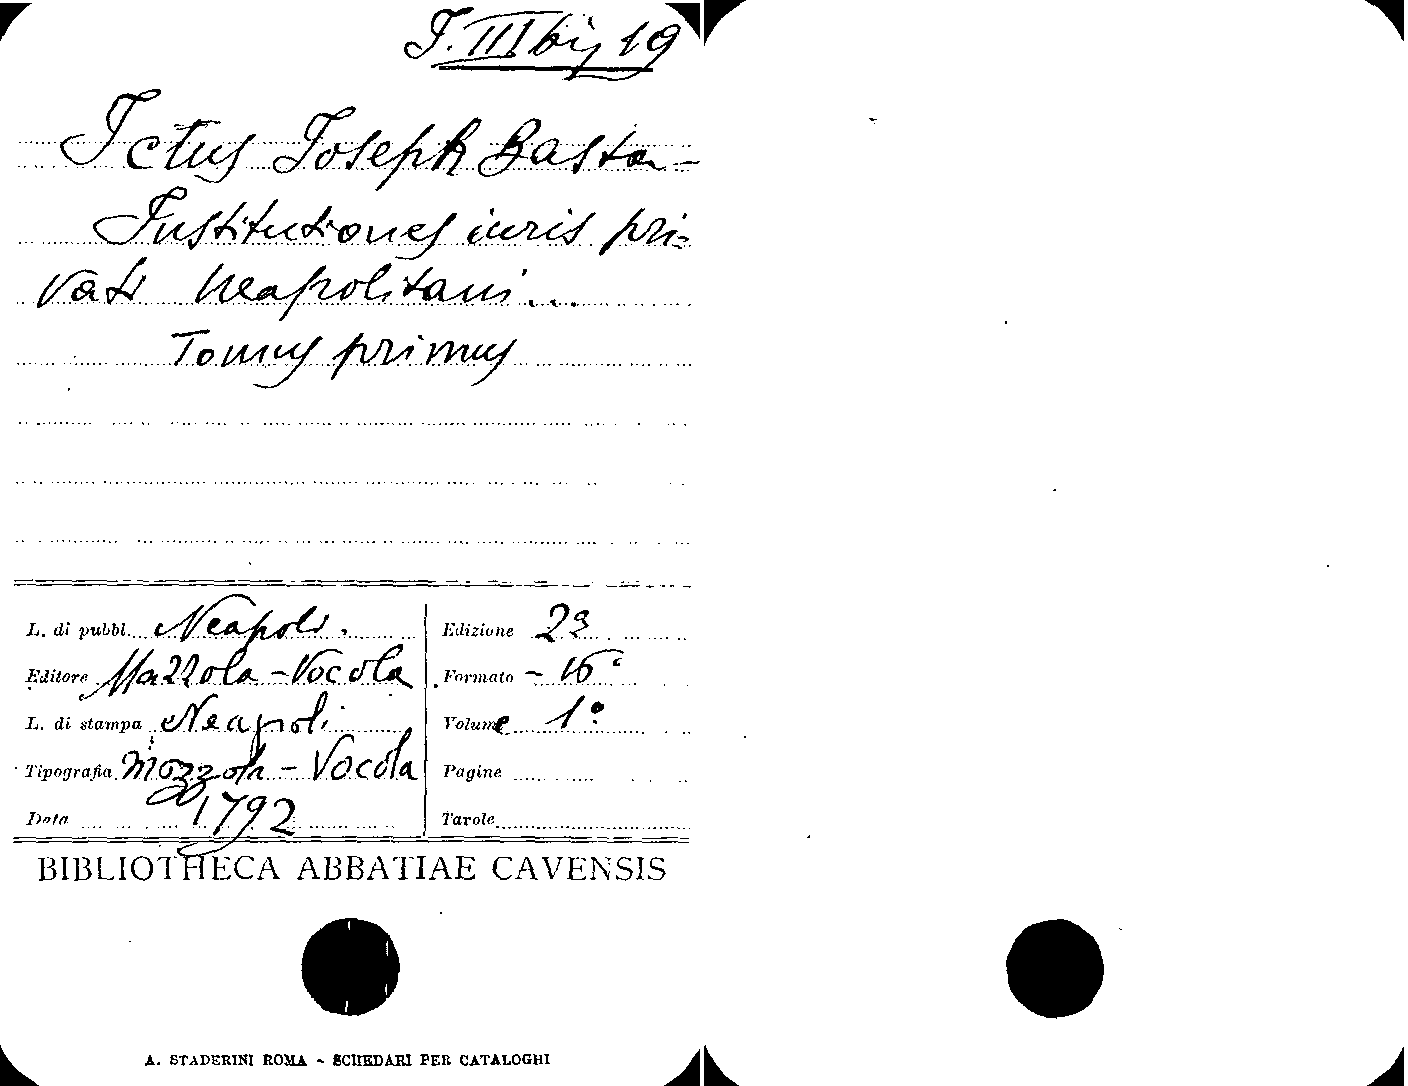 I. III bis 19
Ictus Joseph Basta -
Institutiones iuris pri=
vati Neapolitani...
Tomus primus
L. di pubbl. Neapoli.
Editore Mazzola - Vocola
L. di stampa Neapoli
Tipografia Mozzola - Vocola
Data 1792
Edizione 2ª
Formato - 16°
Volume 1°
Pagine
Tavole
BIBLIOTHECA ABBATIAE CAVENSIS
A. STADERINI ROMA - SCHEDARI PER CATALOGHI